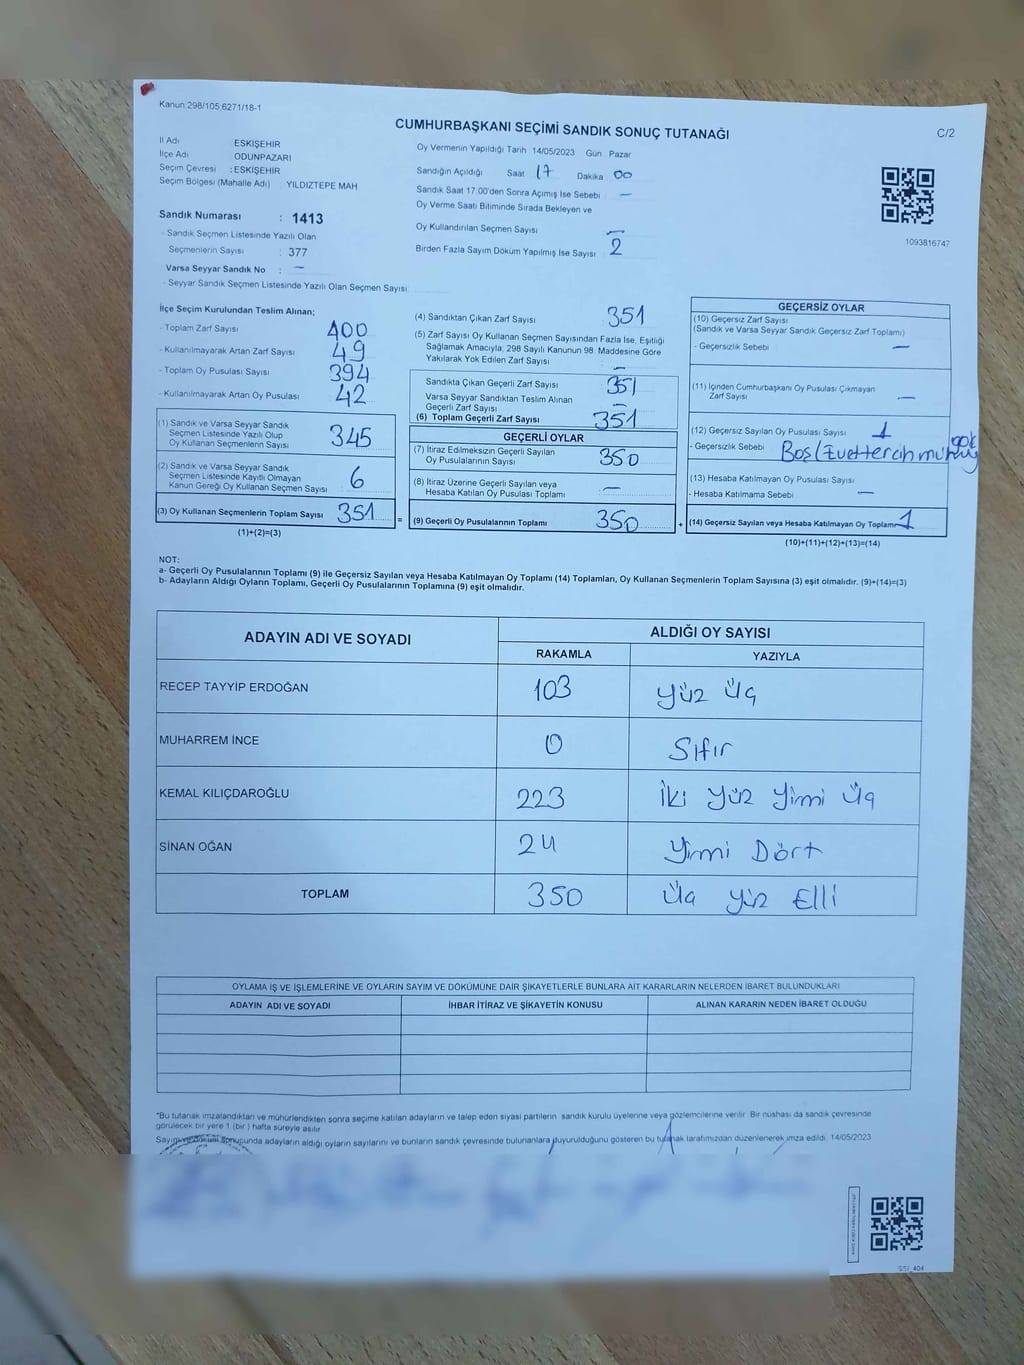 Kanun:298/105:6271/18-1
CUMHURBAŞKANI SEÇİMİ SANDIK SONUÇ TUTANAĞI
C/2
İl Adı ESKİŞEHİR
İlçe Adı ODUNPAZARI
Seçim Çevresi : ESKİŞEHİR
Seçim Bölgesi (Mahalle Adı) YILDIZTEPE MAH.
Oy Vermenin Yapıldığı Tarih 14/05/2023 Gün Pazar
Sandığın Açıldığı Saat 17 Dakika 00
Sandık Saat 17:00'den Sonra Açılmış İse Sebebi : —
Oy Verme Saati Bitiminde Sırada Bekleyen ve
Oy Kullandırılan Seçmen Sayısı —
Birden Fazla Sayım Döküm Yapılmış İse Sayısı 2
1093816747
Sandık Numarası : 1413
- Sandık Seçmen Listesinde Yazılı Olan
Seçmenlerin Sayısı : 377
Varsa Seyyar Sandık No : —
- Seyyar Sandık Seçmen Listesinde Yazılı Olan Seçmen Sayısı:
İlçe Seçim Kurulundan Teslim Alınan;
- Toplam Zarf Sayısı 400
- Kullanılmayarak Artan Zarf Sayısı 49
- Toplam Oy Pusulası Sayısı 394
- Kullanılmayarak Artan Oy Pusulası 42
(1) Sandık ve Varsa Seyyar Sandık
Seçmen Listesinde Yazılı Olup
Oy Kullanan Seçmenlerin Sayısı 345
(2) Sandık ve Varsa Seyyar Sandık
Seçmen Listesinde Kayıtlı Olmayan
Kanun Gereği Oy Kullanan Seçmen Sayısı 6
(3) Oy Kullanan Seçmenlerin Toplam Sayısı 351
(1)+(2)=(3)
=
(4) Sandıktan Çıkan Zarf Sayısı 351
(5) Zarf Sayısı Oy Kullanan Seçmen Sayısından Fazla İse, Eşitliği
Sağlamak Amacıyla, 298 Sayılı Kanunun 98. Maddesine Göre
Yakılarak Yok Edilen Zarf Sayısı —
Sandıkta Çıkan Geçerli Zarf Sayısı 351
Varsa Seyyar Sandıktan Teslim Alınan
Geçerli Zarf Sayısı —
(6) Toplam Geçerli Zarf Sayısı 351
GEÇERLİ OYLAR
(7) İtiraz Edilmeksizin Geçerli Sayılan
Oy Pusulalarının Sayısı 350
(8) İtiraz Üzerine Geçerli Sayılan veya
Hesaba Katılan Oy Pusulası Toplamı —
(9) Geçerli Oy Pusulalarının Toplamı 350
+
GEÇERSİZ OYLAR
(10) Geçersiz Zarf Sayısı
(Sandık ve Varsa Seyyar Sandık Geçersiz Zarf Toplamı)
- Geçersizlik Sebebi —
(11) İçinden Cumhurbaşkanı Oy Pusulası Çıkmayan
Zarf Sayısı —
(12) Geçersiz Sayılan Oy Pusulası Sayısı 1
- Geçersizlik Sebebi Boş
(13) Hesaba Katılmayan Oy Pusulası Sayısı
- Hesaba Katılmama Sebebi —
(14) Geçersiz Sayılan veya Hesaba Katılmayan Oy Toplamı 1
(10)+(11)+(12)+(13)=(14)
NOT:
a- Geçerli Oy Pusulalarının Toplamı (9) ile Geçersiz Sayılan veya Hesaba Katılmayan Oy Toplamı (14) Toplamları, Oy Kullanan Seçmenlerin Toplam Sayısına (3) eşit olmalıdır. (9)+(14)=(3)
b- Adayların Aldığı Oyların Toplamı, Geçerli Oy Pusulalarının Toplamına (9) eşit olmalıdır.
ADAYIN ADI VE SOYADI
ALDIĞI OY SAYISI
RAKAMLA YAZIYLA
RECEP TAYYİP ERDOĞAN 103 Yüz Üç
MUHARREM İNCE 0 Sıfır
KEMAL KILIÇDAROĞLU 223 İki Yüz Yirmi Üç
SİNAN OĞAN 24 Yirmi Dört
TOPLAM 350 Üç Yüz Elli
OYLAMA İŞ VE İŞLEMLERİNE VE OYLARIN SAYIM VE DÖKÜMÜNE DAİR ŞİKAYETLERLE BUNLARA AİT KARARLARIN NELERDEN İBARET BULUNDUKLARI
ADAYIN ADI VE SOYADI İHBAR İTİRAZ VE ŞİKAYETİN KONUSU ALINAN KARARIN NEDEN İBARET OLDUĞU
*Bu tutanak imzalandıktan ve mühürlendikten sonra seçime katılan adayların ve talep eden siyasi partilerin sandık kurulu üyelerine veya gözlemcilerine verilir. Bir nüshası da sandık çevresinde
görülecek bir yere 1 (bir) hafta süreyle asılır.
Sayım ve döküm sonucunda adayların aldığı oyların sayılarını ve bunların sandık çevresinde bulunanlara duyurulduğunu gösteren bu tutanak tarafımızdan düzenlenerek imza edildi. 14/05/2023